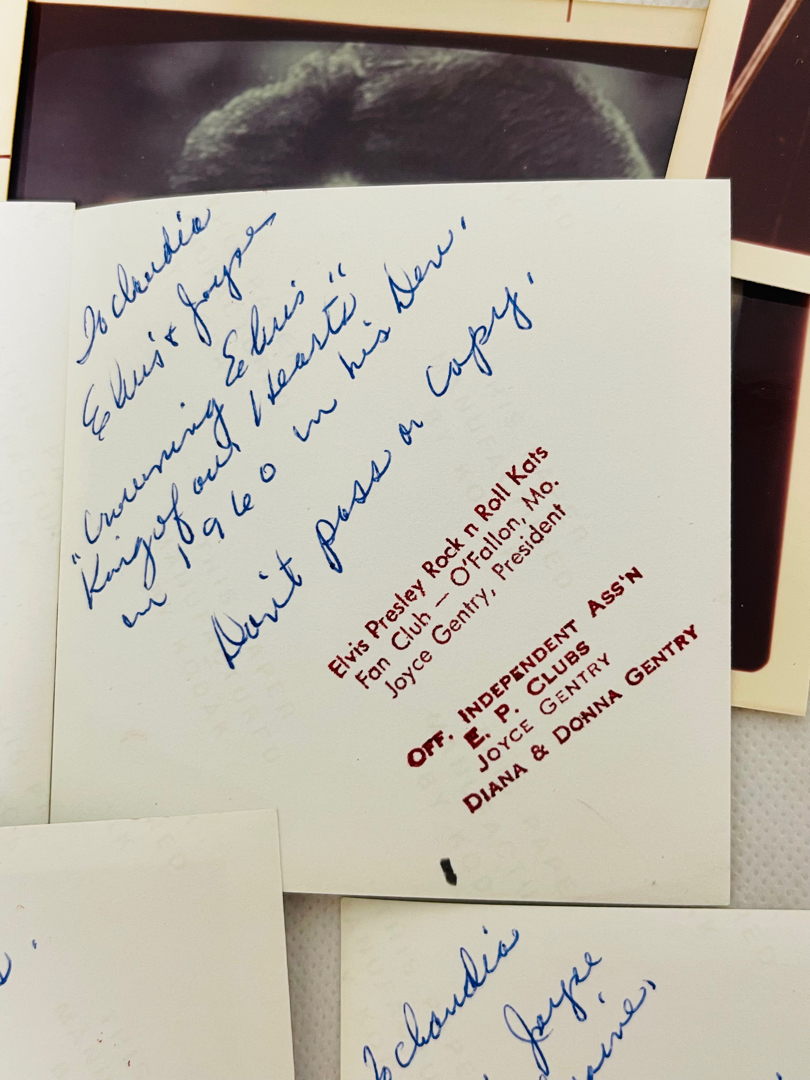 To Claudia
Elvis & Joyce
"Crowning Elvis"
King of our Hearts
in 1960 in his Den.
Don't pass or copy.
Elvis Presley Rock n Roll Kats
Fan Club — O'Fallon, Mo.
Joyce Gentry, President
OFF. INDEPENDENT ASS'N
E. P. CLUBS
JOYCE GENTRY
DIANA & DONNA GENTRY
To Claudia
Joyce